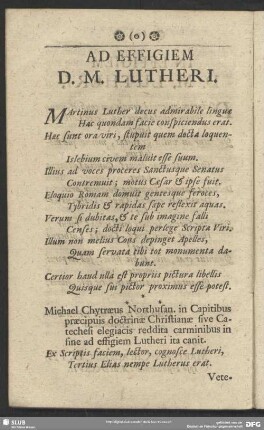 (6)
AD EFFIGIEM
D. M. LUTHERI.
Martinus Luther decus admirabile linguæ
Hac quondam facie conspiciendus erat.
Hæc sunt ora viri, stupuit quem docta loquen-
tem
Islebium civem maluit esse suum.
Illius ad voces proceres Sanctusque Senatus
Contremuit; motus Cæsar & ipse fuit.
Eloquio Romam domuit gentesque feroces,
Tybridis & rapidas sæpe reflexit aquas.
Verum si dubitas, & te sub imagine falli
Censes; docti loqui perlege Scripta Viri.
Illum non melius Cous depinget Apelles,
Quam servata tibi tot monumenta da-
bunt.
Certior haud ulla est propriis pictura libellis
Quisque sui pictor proximus esse potest.
*
Michael Chytræus Northusan. in Capitibus
præcipuis doctrinæ Christianæ sive Ca-
techesi elegiacis reddita carminibus in
fine ad effigiem Lutheri ita canit.
Ex Scriptis faciem, lector, cognosce Lutheri,
Tertius Elias nempe Lutherus erat.
Vete-
SLUB
DFG